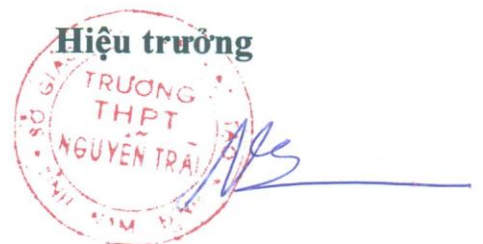 Hiệu trưởng
TRƯỜNG
THPT
NGUYỄN TRÃI
SỞ GIÁO